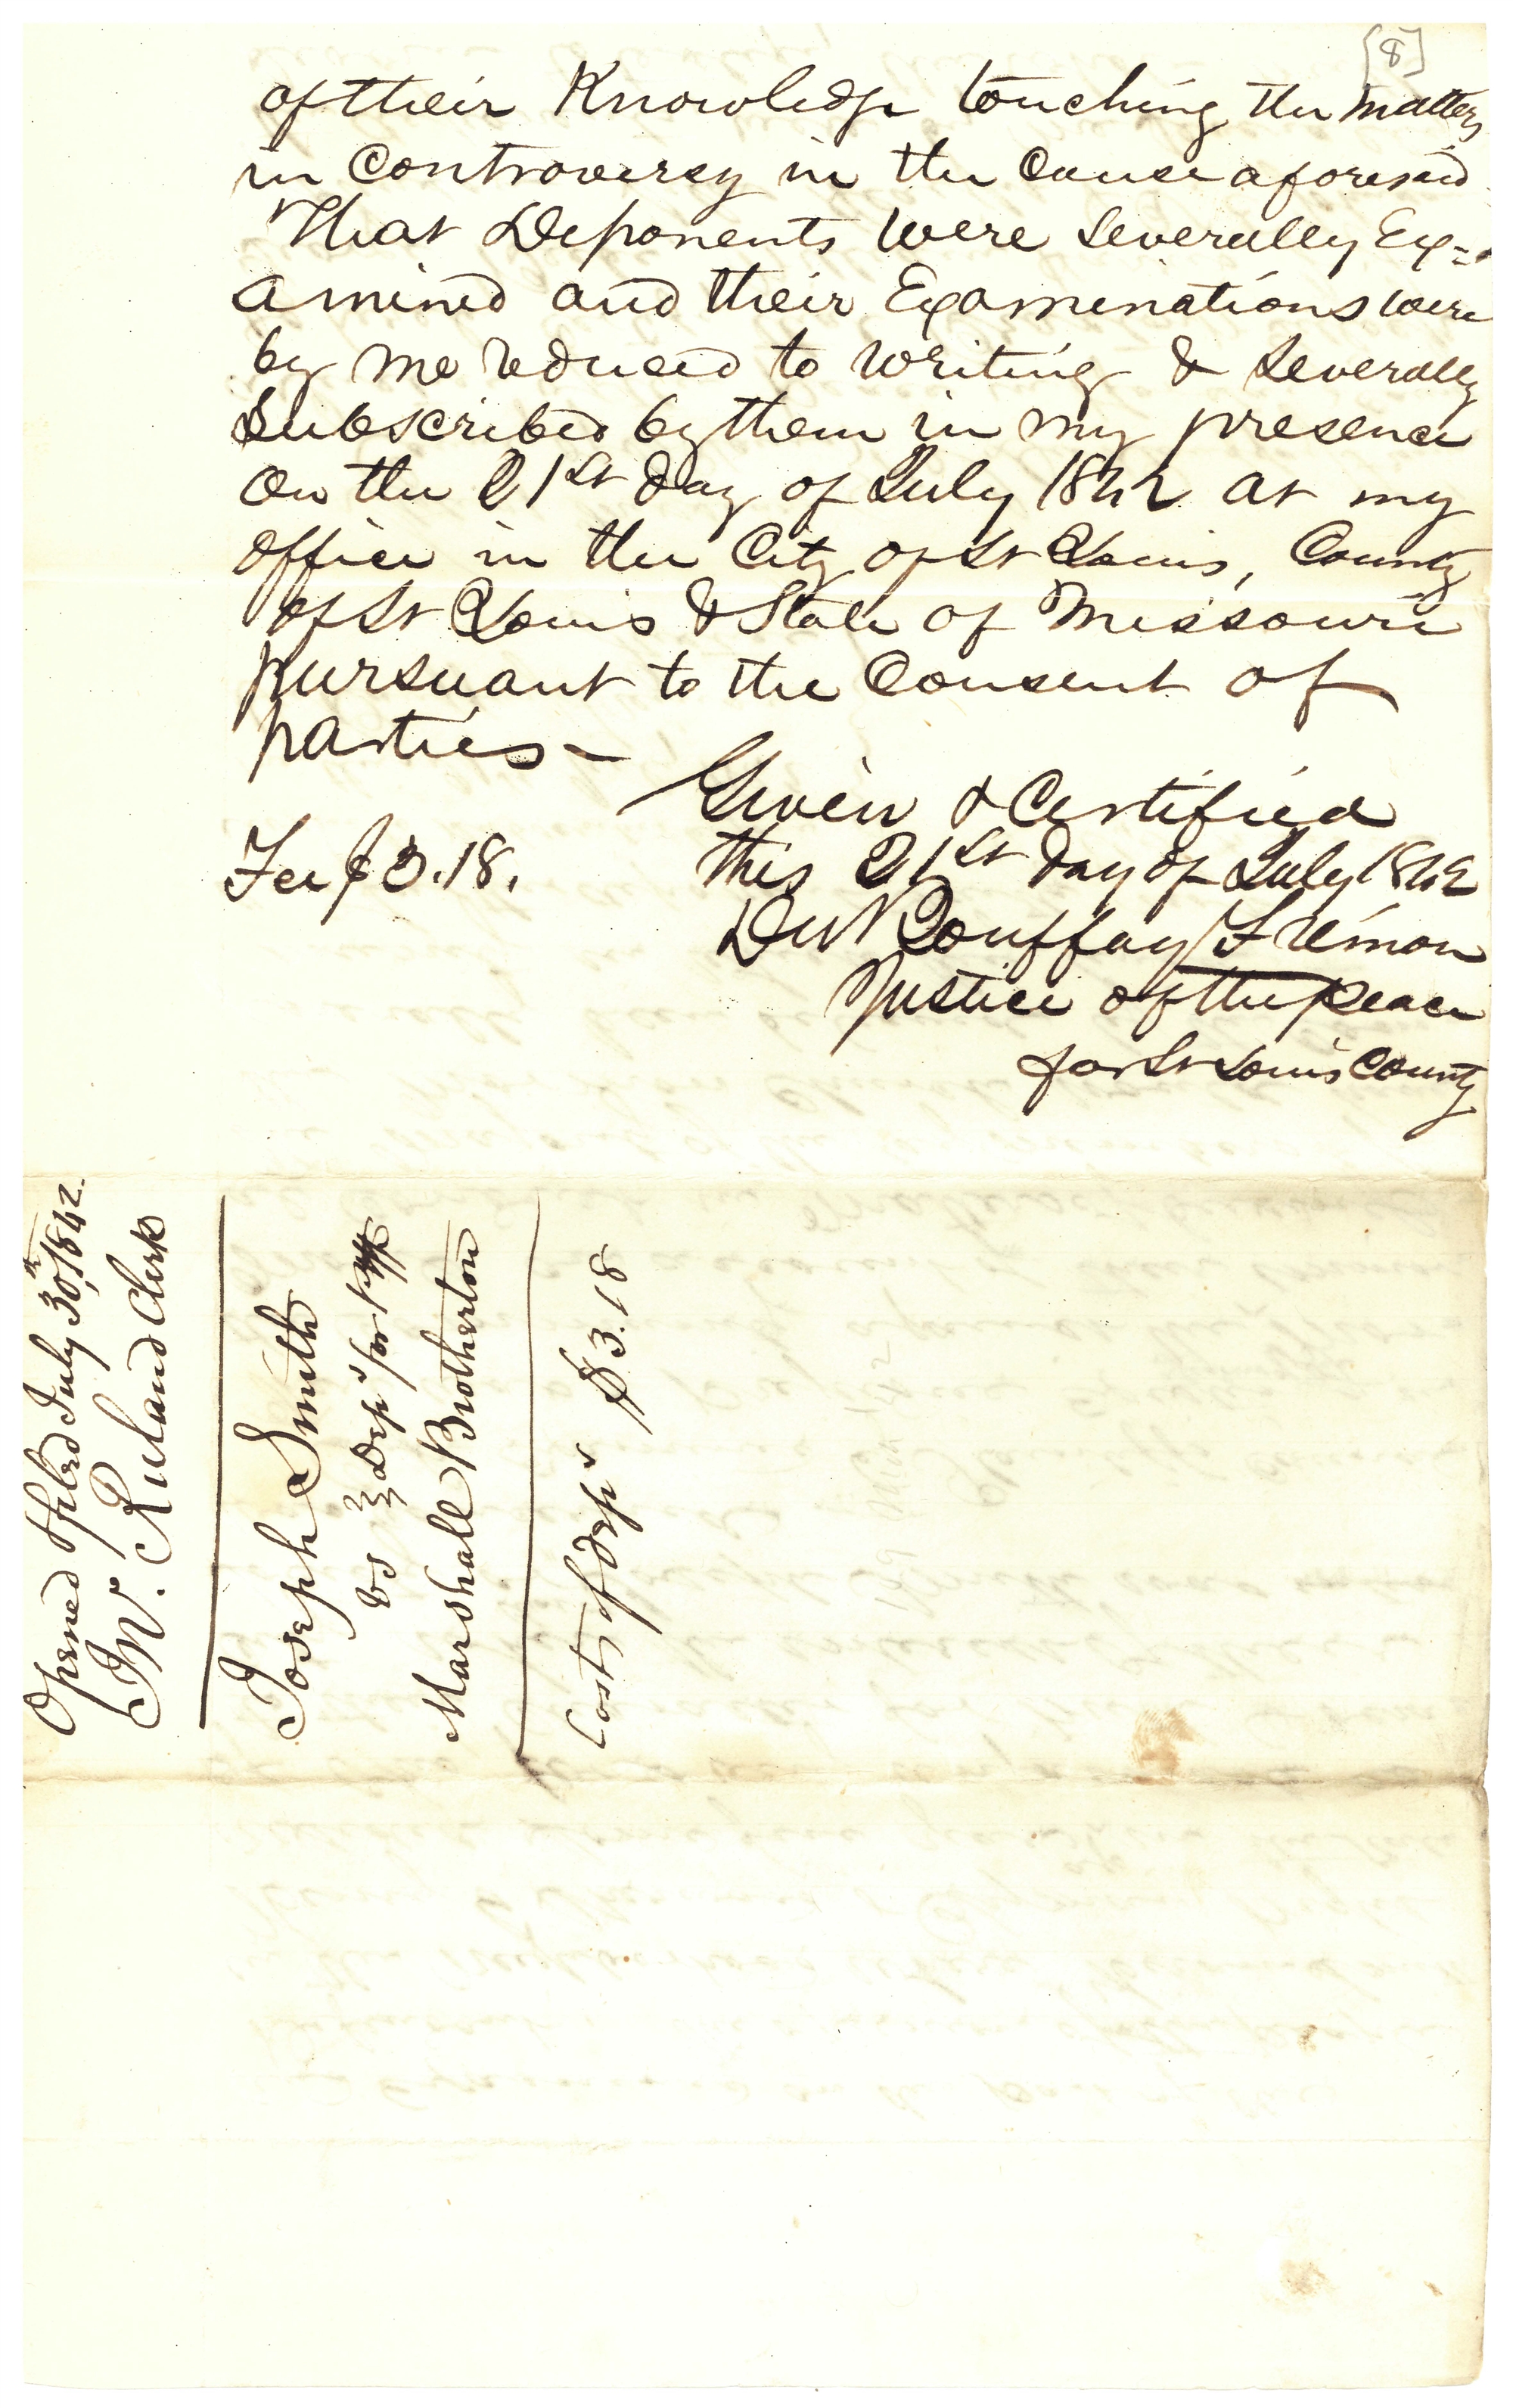 [8]
of their Knowledge touching the matters
in Controversy in the Cause aforesaid
That Deponents were severally Ex=
amined and their Examinations were
by me reduced to writing & severally
subscribed by them in my presence
on the 21st day of July 1842 at my
office in the City of St Louis, County
of St Louis & State of Missouri
pursuant to the Consent of
parties —
Given & Certified
Fee $3.18.
this 21st day of July 1842
Bouffay Fremon
Justice of the peace
for St Louis County
Opened & filed July 30th, 1842.
Jno. Ruland Clerk
Joseph Smith
vs } Depn for Ptff
Marshall Brotherton
Cost of Depn $3.18